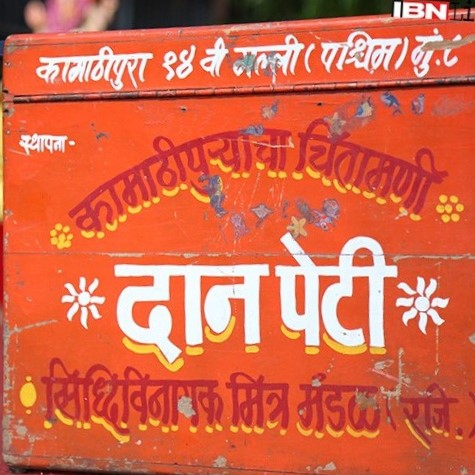 IBN.in
कामाठीपुरा १४ वी गल्ली ( पश्चिम ) मुं. ८
स्थापना -
कामाठीपुऱ्याचा चिंतामणी
दान पेटी
सिध्दिविनायक मित्र मंडळ ( रजि. )